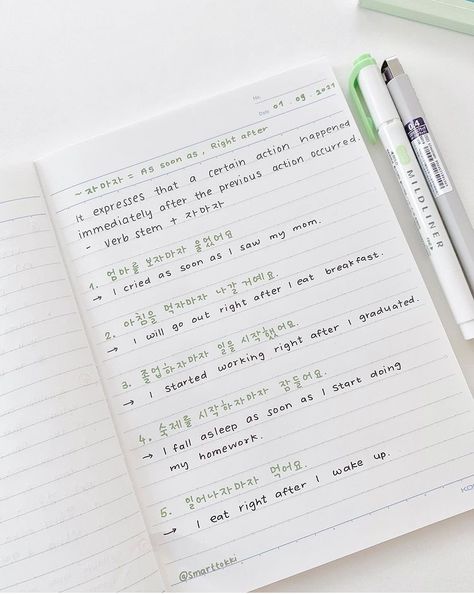 No.
Date 01 . 09 . 2021
~ 자마자 = As soon as , Right after
It expresses that a certain action happened
immediately after the previous action occurred.
- Verb stem + 자마자
1. 엄마를 보자마자 울었어요
→ I cried as soon as I saw my mom.
2. 아침을 먹자마자 나갈 거예요.
→ I will go out right after I eat breakfast.
3. 졸업하자마자 일을 시작했어요.
→ I started working right after I graduated.
4. 숙제를 시작하자마자 잠들어요.
→ I fall asleep as soon as I start doing
my homework.
5. 일어나자마자 먹어요.
→ I eat right after I wake up.
@smarttokki
MILDLINER
0.4